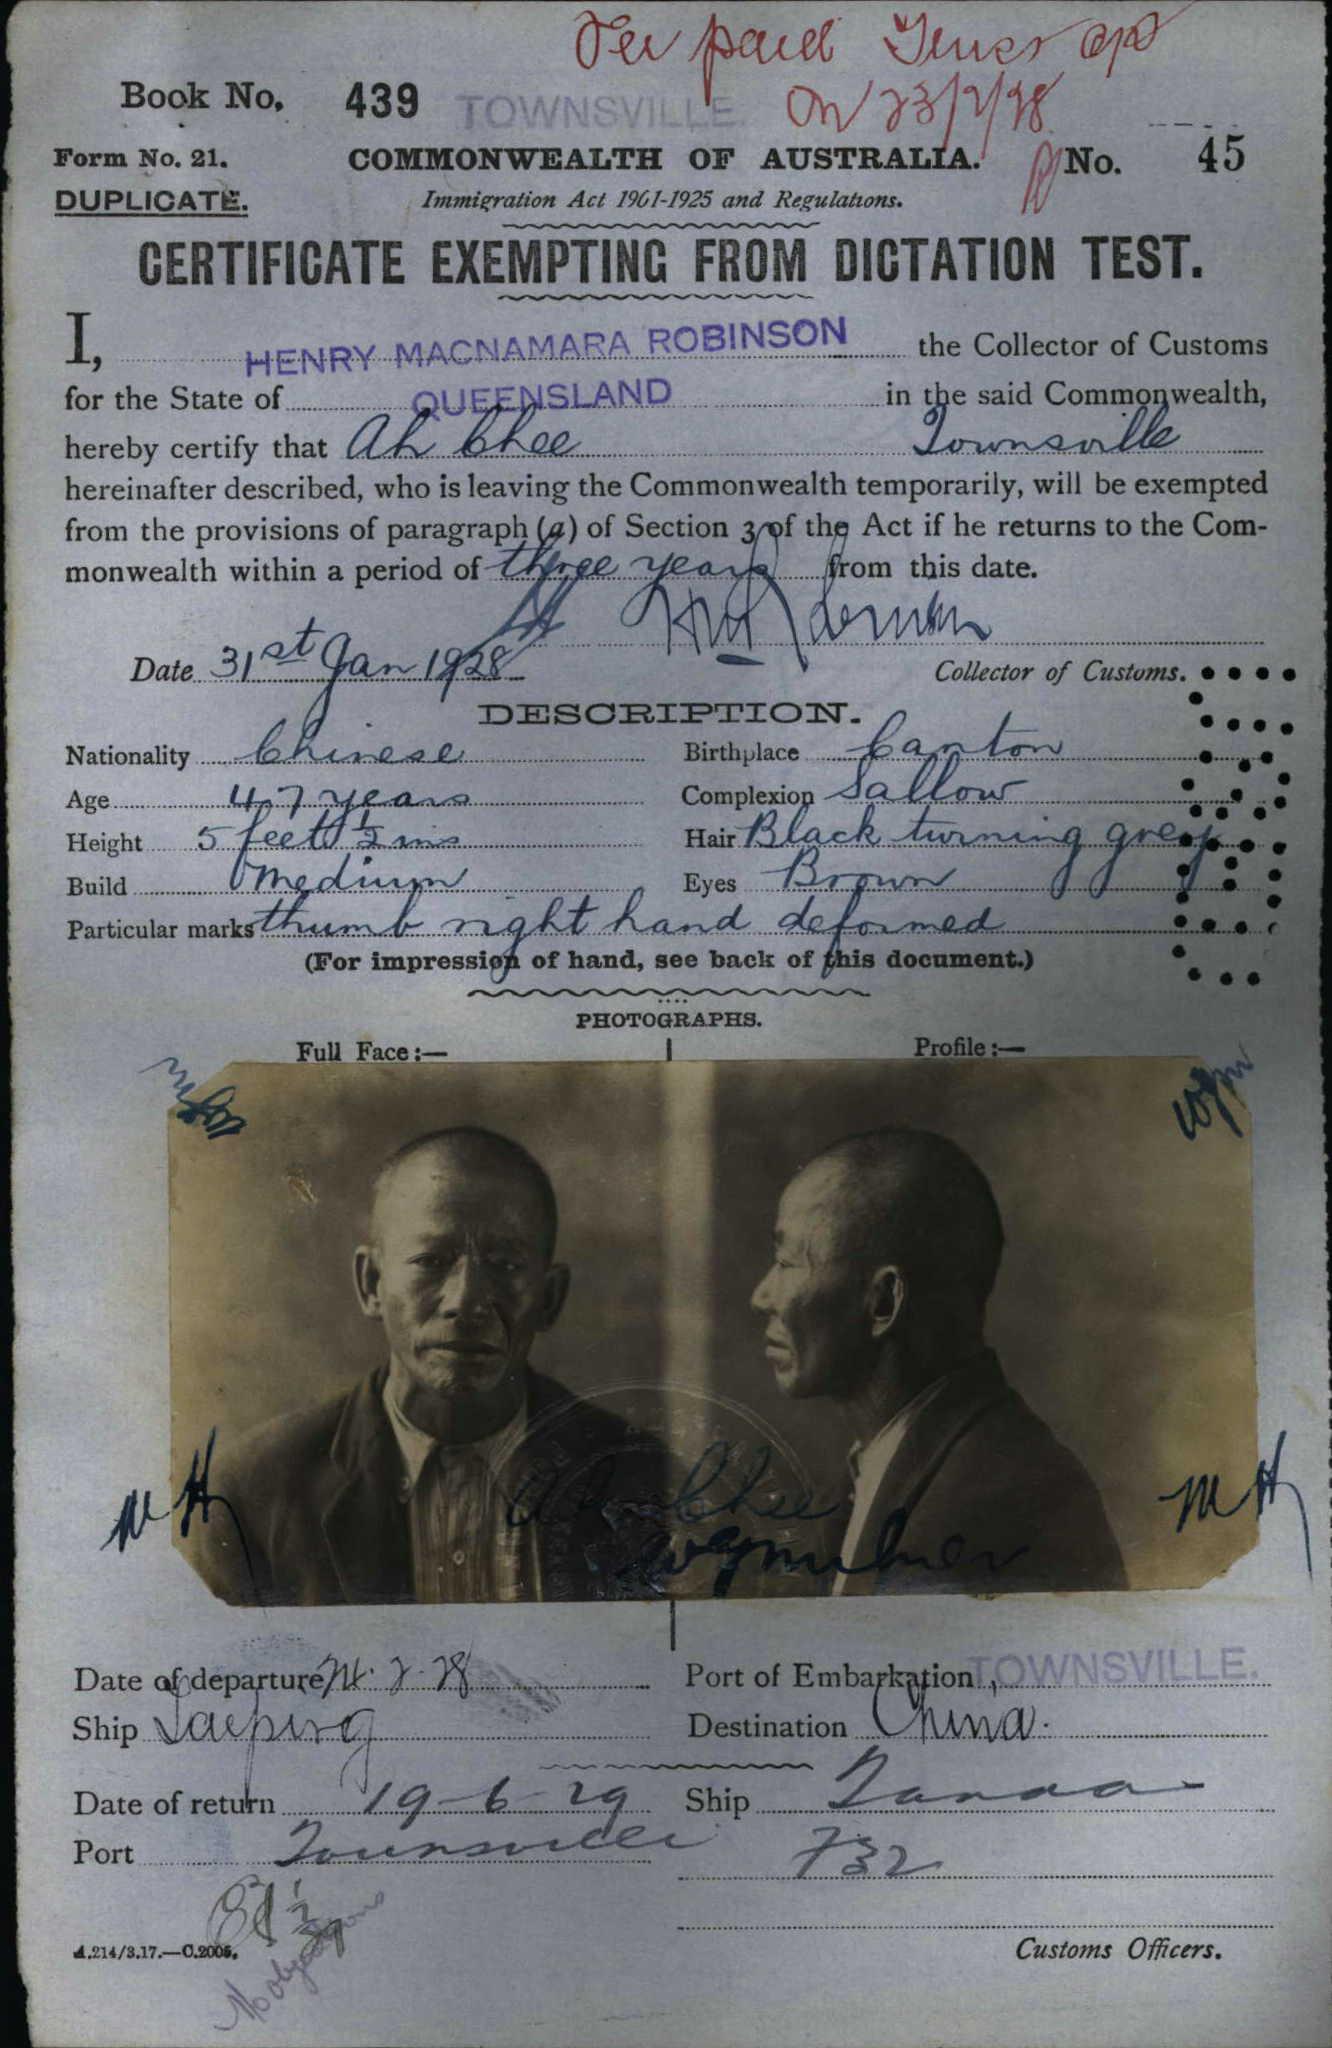 paid
Book No. 439 TOWNSVILLE. On 23/2/28
Form No. 21. COMMONWEALTH OF AUSTRALIA. No. 45
DUPLICATE. Immigration Act 1901-1925 and Regulations.
CERTIFICATE EXEMPTING FROM DICTATION TEST.
I, HENRY MACNAMARA ROBINSON the Collector of Customs
for the State of QUEENSLAND in the said Commonwealth,
hereby certify that Ah Chee Townsville
hereinafter described, who is leaving the Commonwealth temporarily, will be exempted
from the provisions of paragraph (a) of Section 3 of the Act if he returns to the Com-
monwealth within a period of three years from this date.
Date 31st Jan 1928 Collector of Customs.
DESCRIPTION.
Nationality Chinese Birthplace Canton
Age 47 years Complexion Sallow
Height 5 feet 1/2 ins Hair Black turning grey
Build Medium Eyes Brown
Particular marks thumb right hand deformed
(For impression of hand, see back of this document.)
PHOTOGRAPHS.
Full Face:— Profile:—
MH MH
Ah Chee
Date of departure 24.2.28 Port of Embarkation, TOWNSVILLE.
Ship Taiping Destination China.
Date of return 19-6-29 Ship Tanda
Port Townsville 732
A.214/3.17.—C.2006. Customs Officers.